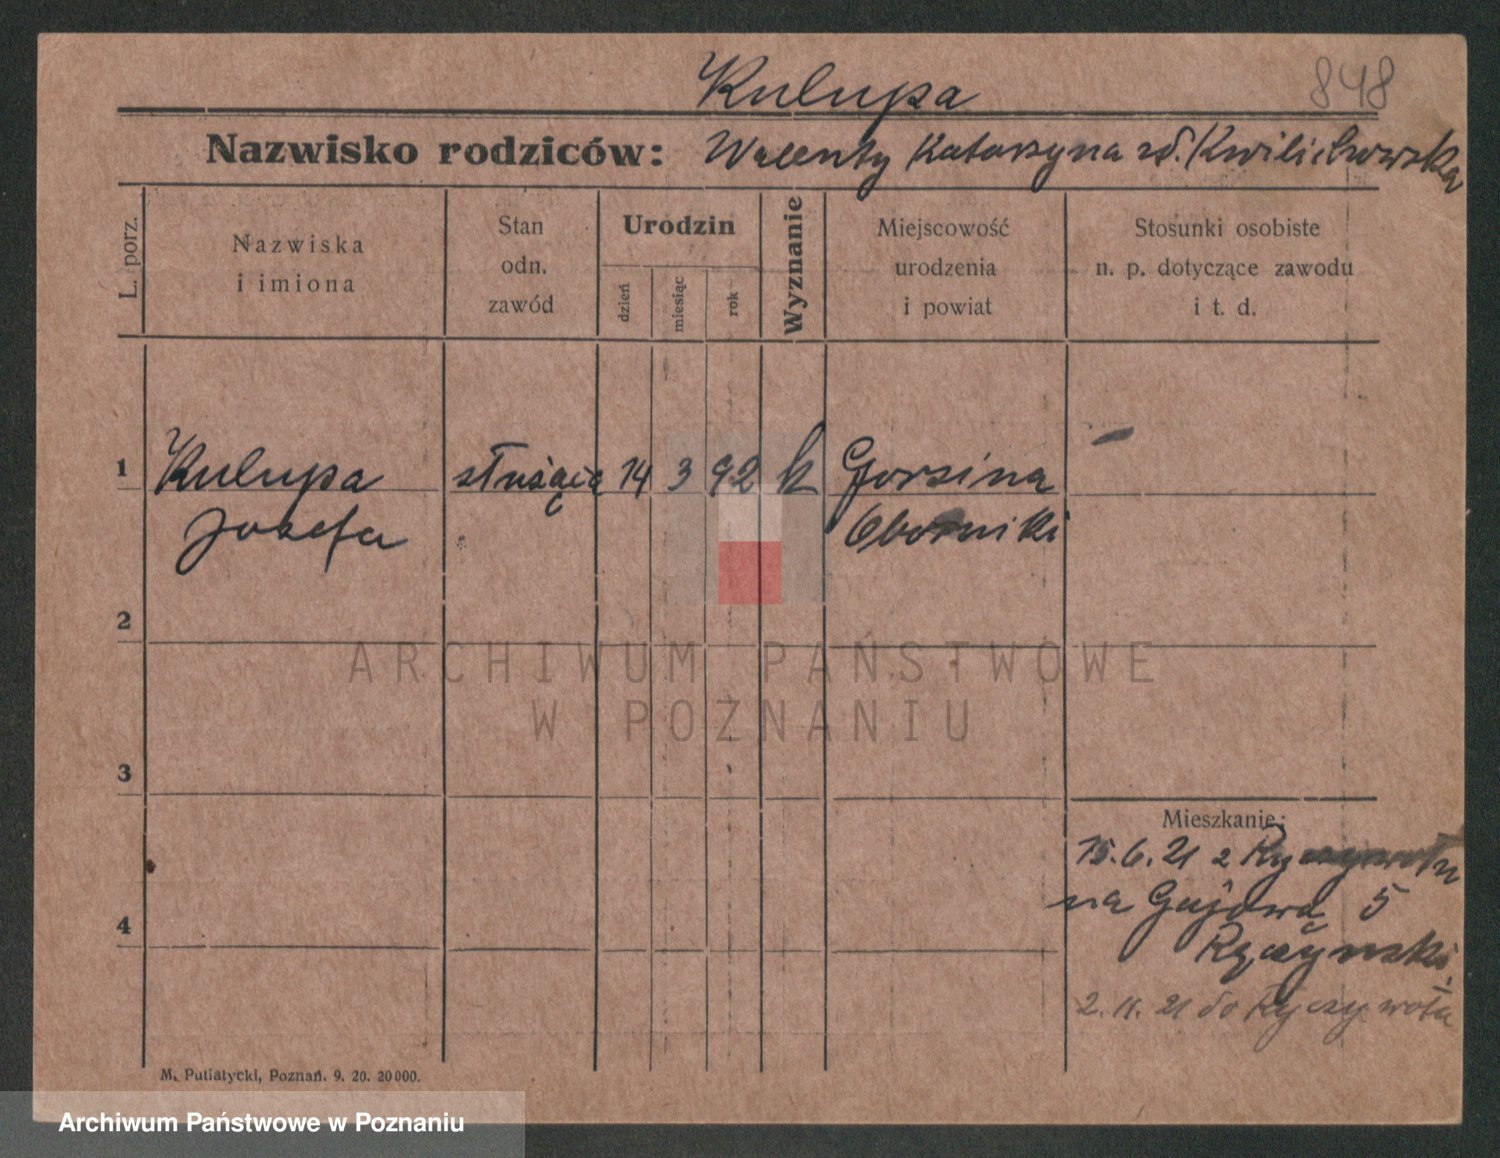 Kulupa
848
Nazwisko rodziców: Walenty Katarzyna zd. Kwilichowska
L. porz.
Nazwiska
i imiona
Stan
odn.
zawód
Urodzin
dzień
miesiąc
rok
Wyznanie
Miejscowość
urodzenia
i powiat
Stosunki osobiste
n. p. dotyczące zawodu
i t. d.
1 Kulupa służąca 14 3 92 k Gorzina
Józefa Oborniki
2
ARCHIWUM PAŃSTWOWE
W POZNANIU
3
Mieszkanie:
15.6.21 z Ryczywołu
na Gajową 5
4
2.11.21 do Ryczywołu
M. Putiatycki, Poznań. 9. 20. 20000.
Archiwum Państwowe w Poznaniu